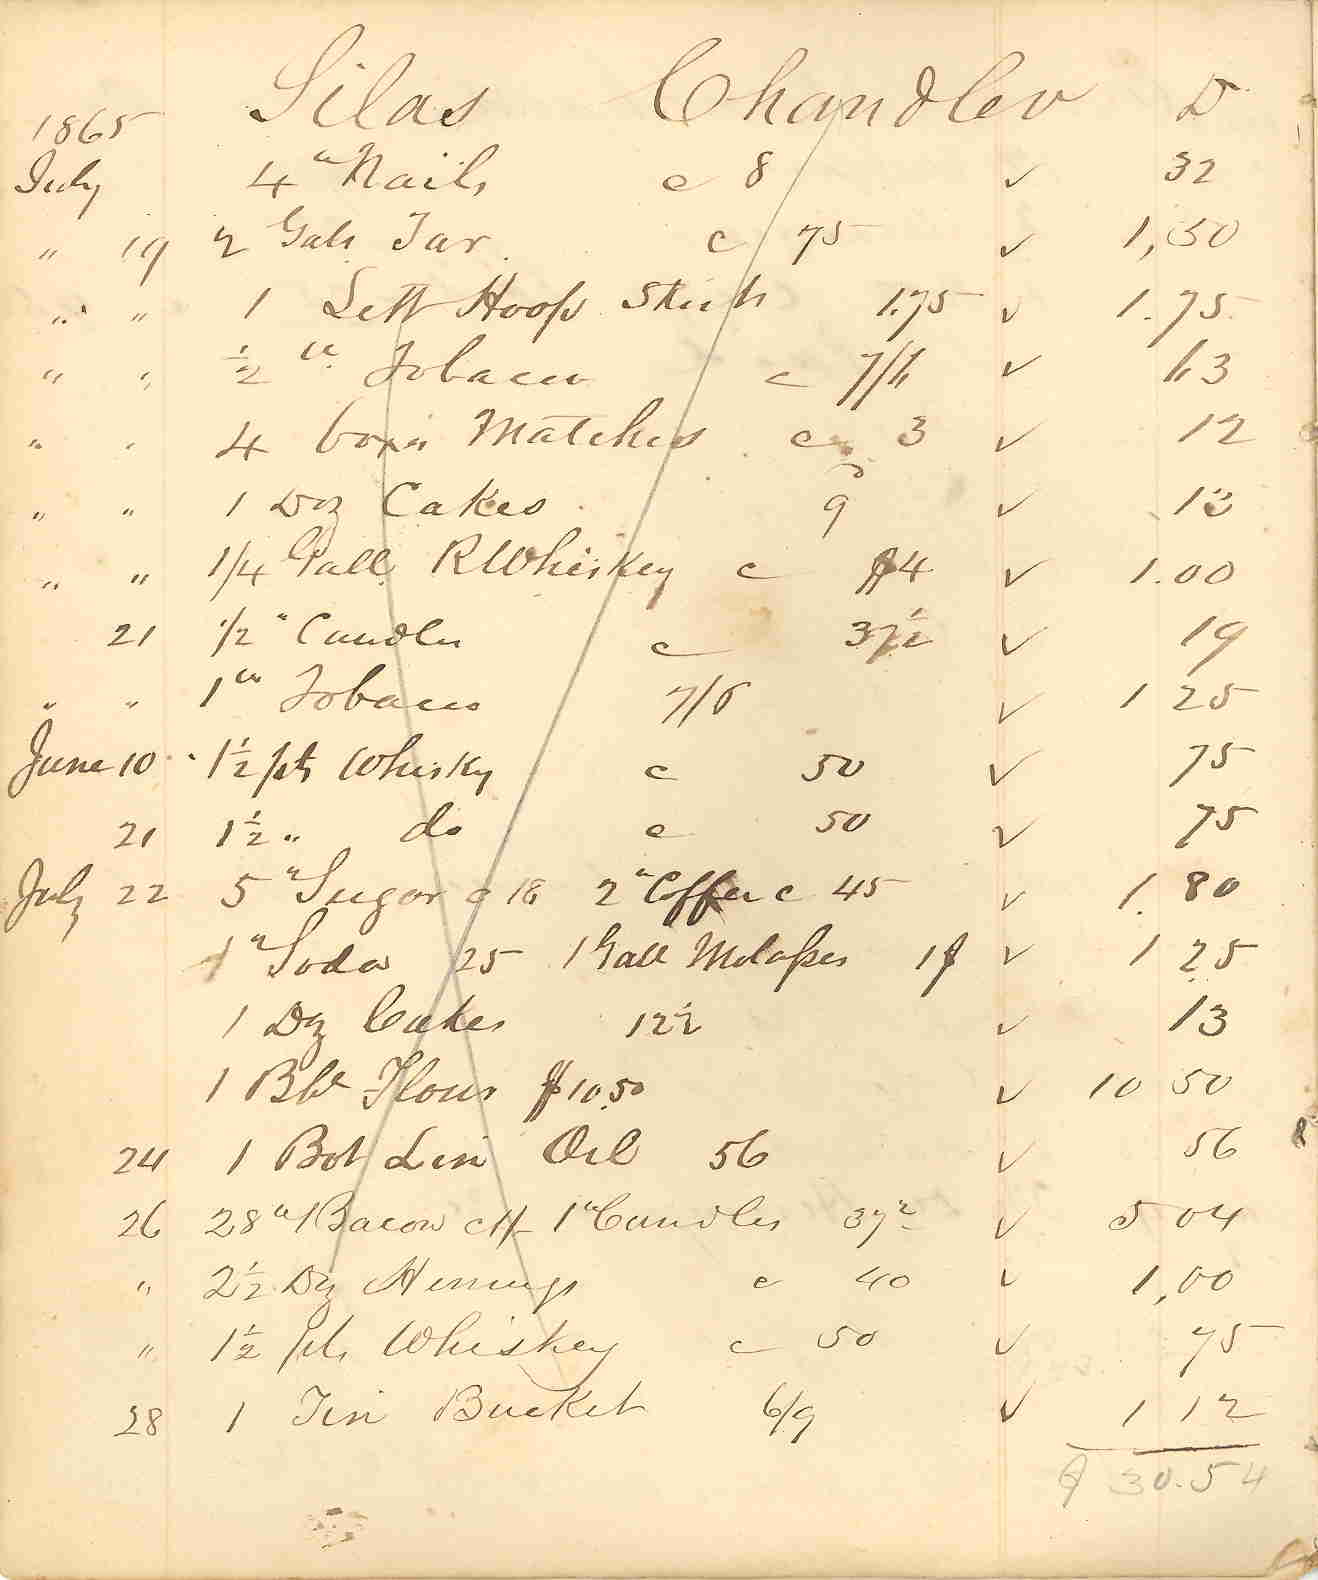 Silas Chandler D
1865
July 4 " Nails c 8 ✓ 32
" 19 2 Galls Tar c 75 ✓ 1,50
" " 1 Sett Hoop Skirts 1.75 ✓ 1.75
" " ½ " Tobacco c 7/6 ✓ 63
" " 4 boxes Matches c 3 ✓ 12
" " 1 Doz Cakes 9 ✓ 13
" " 1/4 Gall R Whiskey c $4 ✓ 1.00
21 1/2 " Candles c 37½ ✓ 19
" " 1 " Tobacco 7/6 ✓ 1 25
June 10 1½ pts Whisky c 50 ✓ 75
21 1½ " do c 50 ✓ 75
July 22 5 " Sugar c 18 2 " Coffee c 45 ✓ 1.80
1 " Soda 25 1 Gall Molasses 1$ ✓ 1 25
1 Dz Cakes 12½ ✓ 13
1 Bbl Flour $10.50 ✓ 10 50
24 1 Bot Lin Oil 56 ✓ 56
26 28 " Bacon 1 " Candles 37½ ✓ 5 04
" 2½ Dz Herrings c 40 ✓ 1,00
" 1½ pts Whiskey c 50 ✓ 75
28 1 Tin Bucket 6/9 ✓ 1 12
$ 30.54